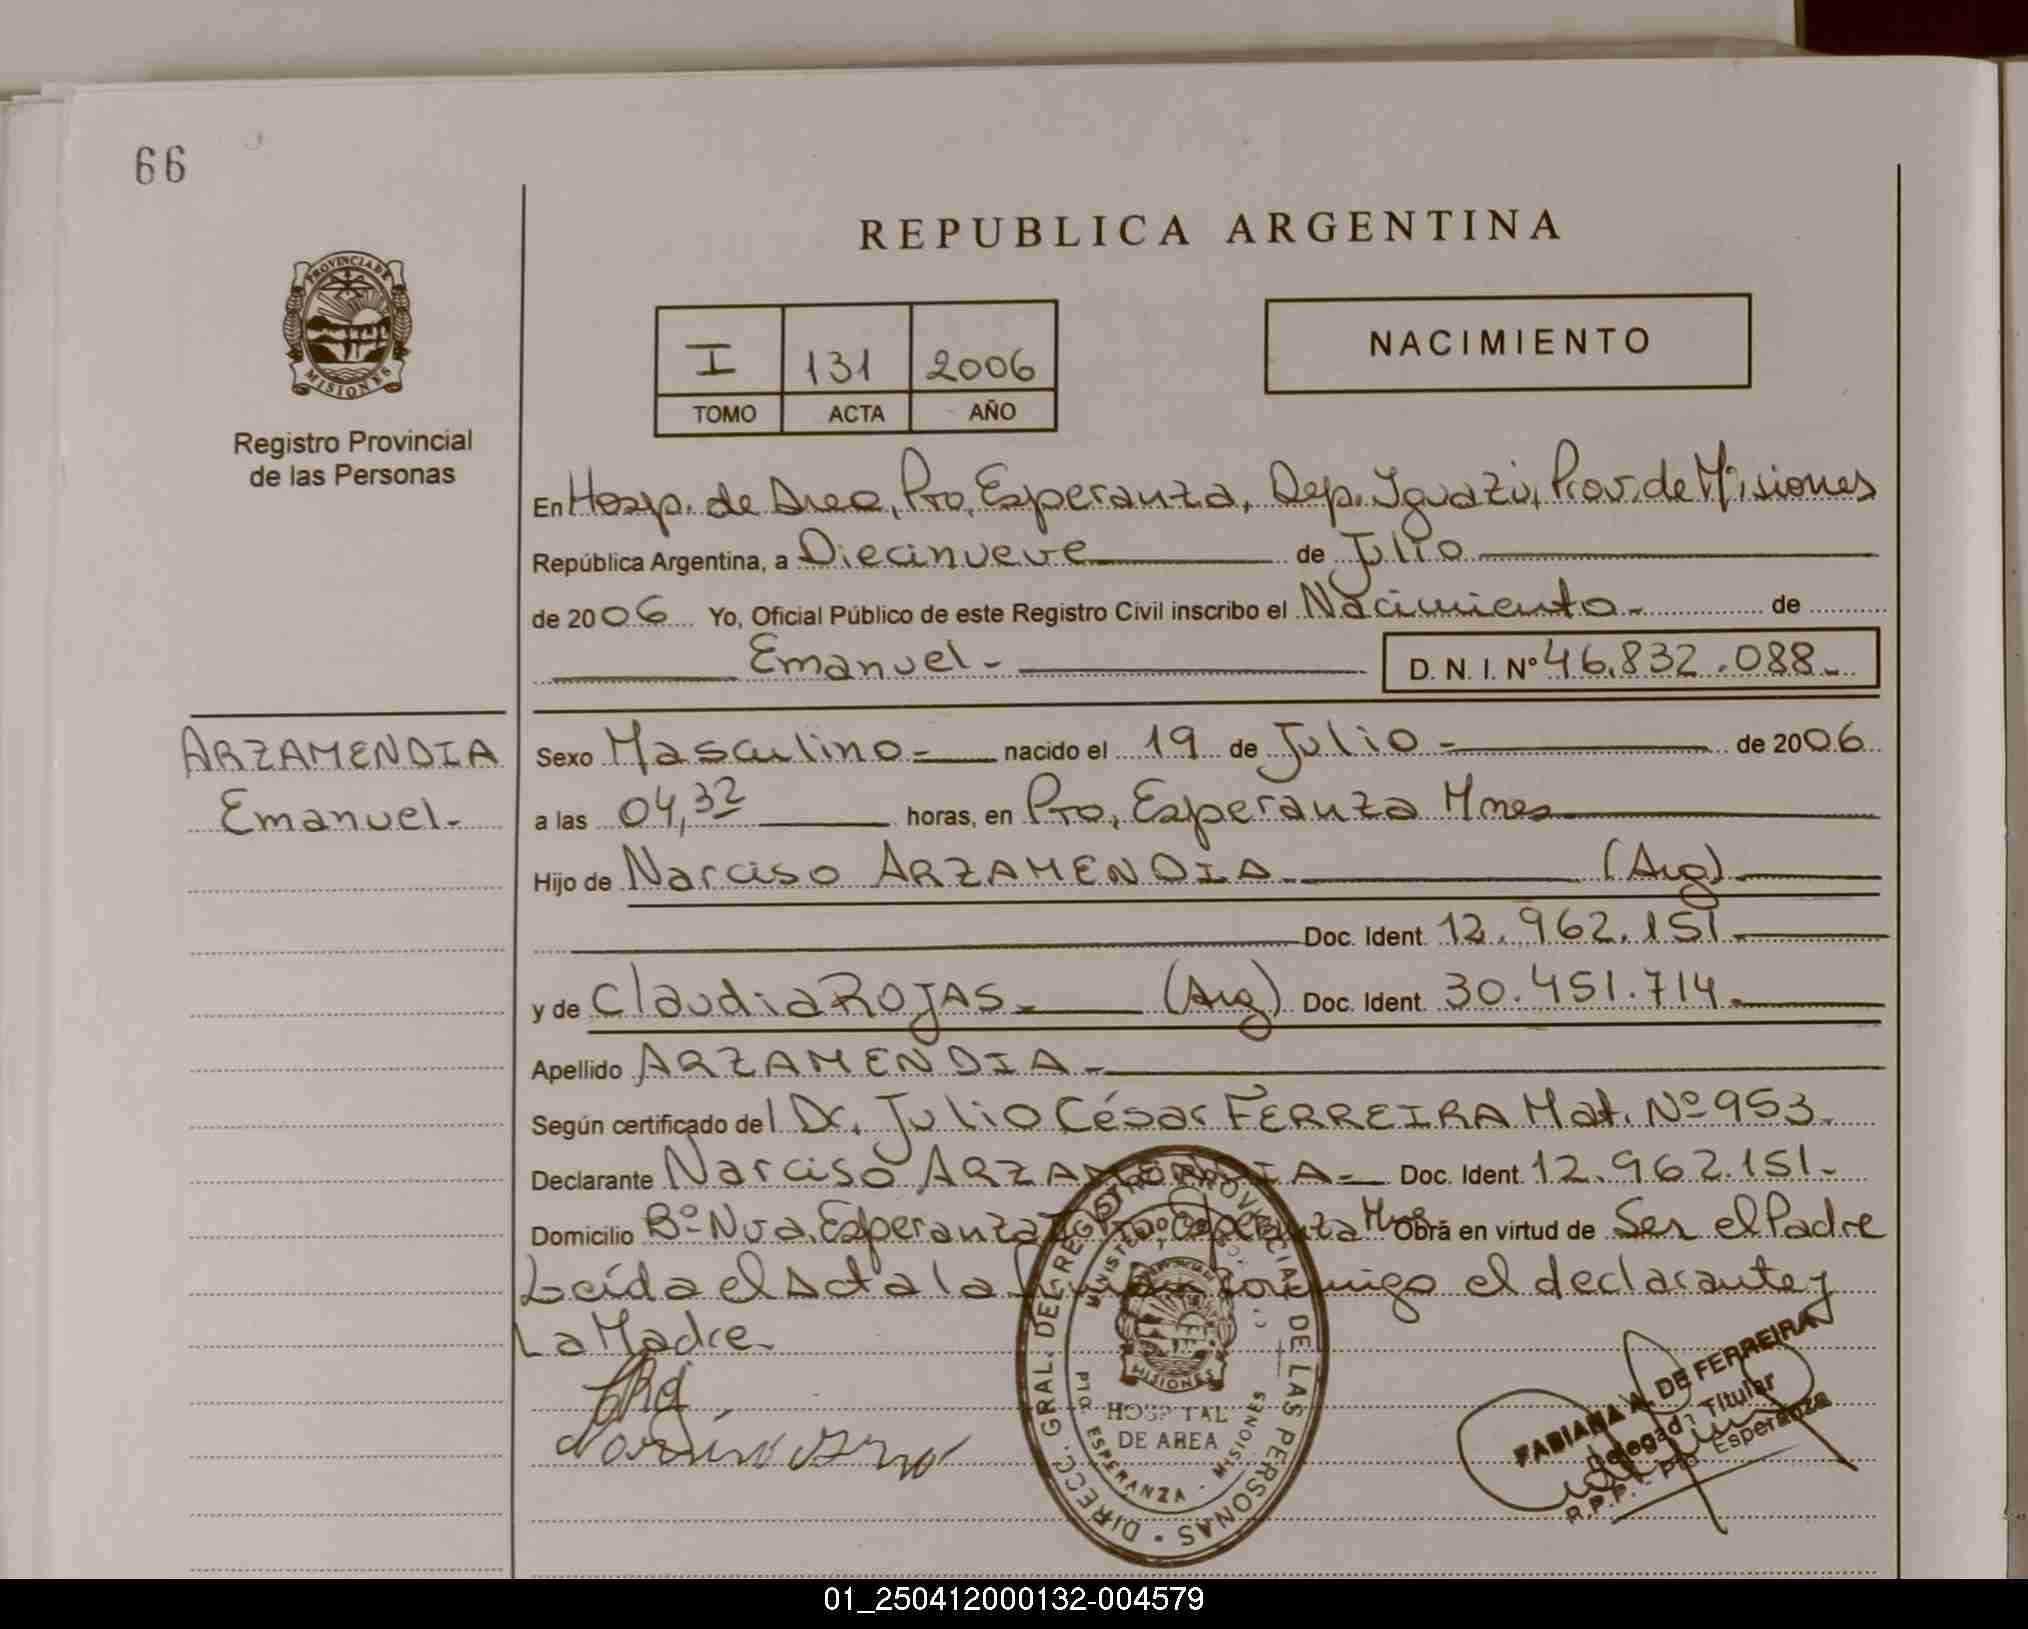 66
REPUBLICA ARGENTINA
PROVINCIA DE
MISIONES
Registro Provincial
de las Personas
I 131 2006
TOMO ACTA AÑO
NACIMIENTO
En Hosp. de Area, Pto. Esperanza, Dep. Iguazú, Prov. de Misiones
República Argentina, a Diecinueve de Julio
de 2006 Yo, Oficial Público de este Registro Civil inscribo el Nacimiento - de
Emanuel - D. N. I. Nº 46.832.088-
ARZAMENDIA
Emanuel-
Sexo Masculino- nacido el 19 de Julio - de 2006
a las 04,32 horas, en Pto, Esperanza Mnes
Hijo de Narciso ARZAMENDIA (Arg)
Doc. Ident. 12.962.151
y de Claudia ROJAS- (Arg) Doc. Ident. 30.451.714-
Apellido ARZAMENDIA-
Según certificado del Dr. Julio César FERREIRA Mat. Nº 953.
Declarante Narciso ARZAMENDIA- Doc. Ident. 12.962.151-
Domicilio Bº Nva. Esperanza Pto. Esperanza Mnes Obra en virtud de Ser el Padre
Leída el Acta la firman conmigo el declarante y
La Madre-
DIRECC. GRAL. DEL REGISTRO PROVINCIAL DE LAS PERSONAS
MISIONES
HOSPITAL
DE AREA
PTO. ESPERANZA - MISIONES
FABIANA A. DE FERREIRA
Delegada Titular
R.P.P. - Pto Esperanza
01_250412000132-004579